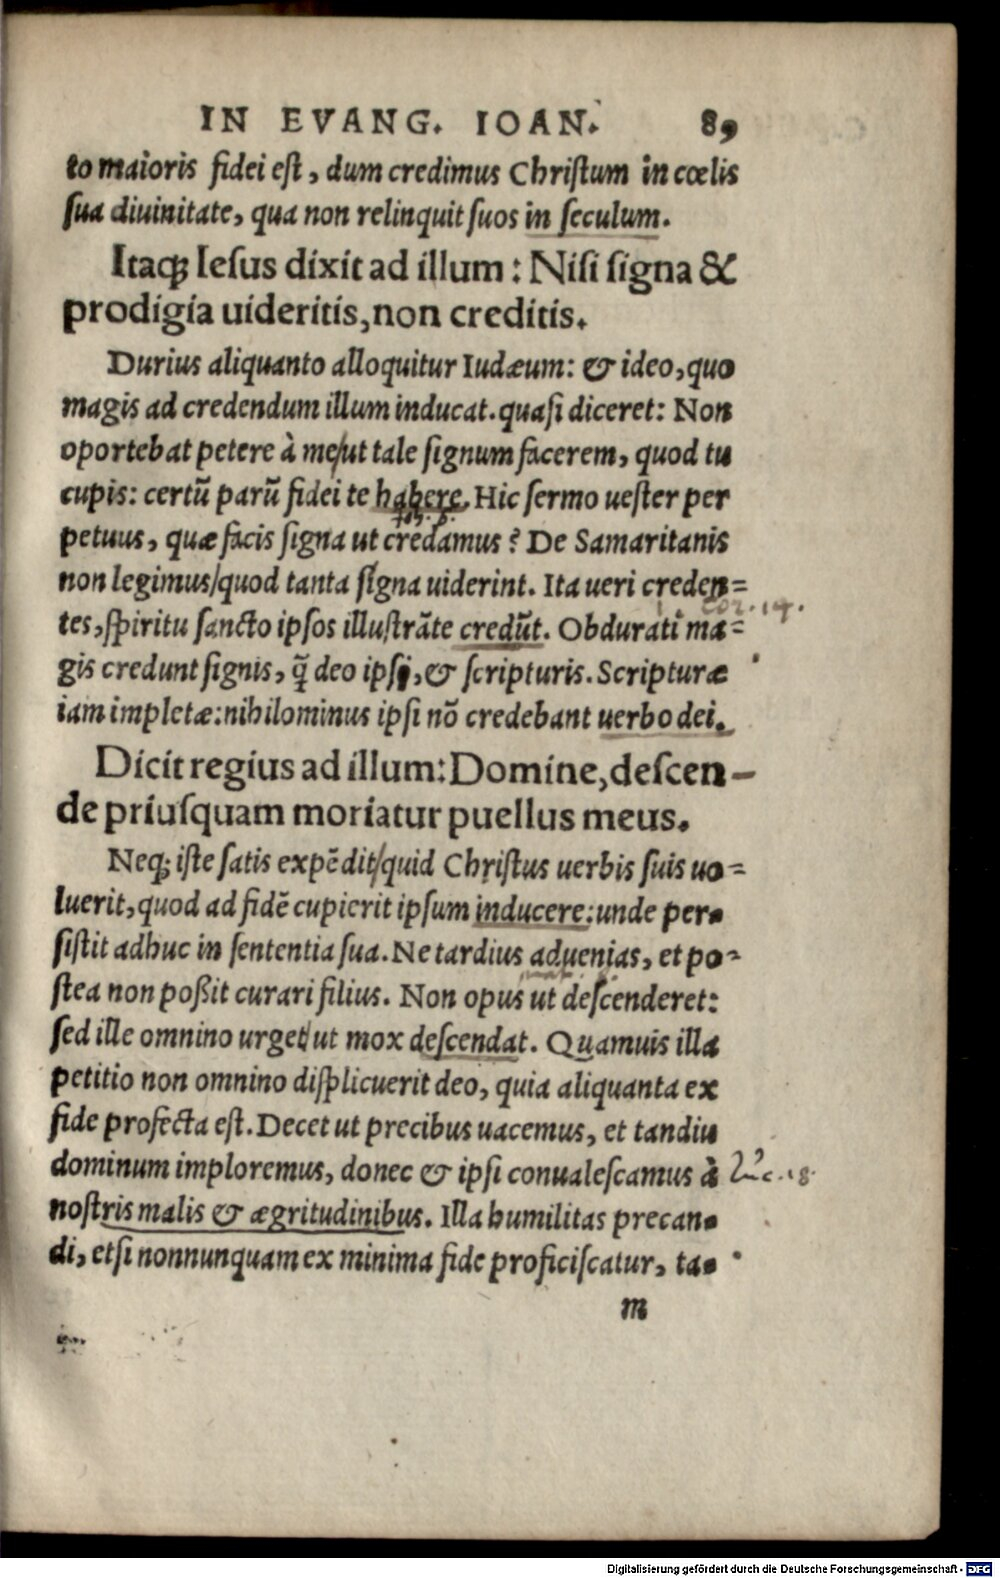 IN EVANG. IOAN. 89
to maioris fidei est, dum credimus Christum in cœlis
sua diuinitate, qua non relinquit suos in seculum.
Itaq; Iesus dixit ad illum: Nisi signa &
prodigia uideritis, non creditis.
Durius aliquanto alloquitur Iudæum: & ideo, quo
magis ad credendum illum inducat. quasi diceret: Non
oportebat petere à me/ut tale signum facerem, quod tu
cupis: certũ parũ fidei te habere. Hic sermo uester per
petuus, quæ facis signa ut credamus? De Samaritanis
non legimus/quod tanta signa uiderint. Ita ueri creden=
tes, spiritu sancto ipsos illustrãte credũt. Obdurati ma=
1 Cor. 14.
gis credunt signis, q̃ deo ipsi, & scripturis. Scripturæ
iam impletæ: nihilominus ipsi nõ credebant uerbo dei.
Dicit regius ad illum: Domine, descen-
de priusquam moriatur puellus meus.
Neq; iste satis expẽdit/quid Christus uerbis suis uo=
luerit, quod ad fidẽ cupierit ipsum inducere: unde per=
sistit adhuc in sententia sua. Ne tardius aduenias, et po=
stea non poßit curari filius. Non opus ut descenderet:
sed ille omnino urget/ut mox descendat. Quamuis illa
petitio non omnino displicuerit deo, quia aliquanta ex
fide profecta est. Decet ut precibus uacemus, et tandiu
dominum imploremus, donec & ipsi conualescamus à
Luc. 18.
nostris malis & ægritudinibus. Illa humilitas precan=
di, etsi nonnunquam ex minima fide proficiscatur, ta=
m
Digitalisierung gefördert durch die Deutsche Forschungsgemeinschaft - DFG